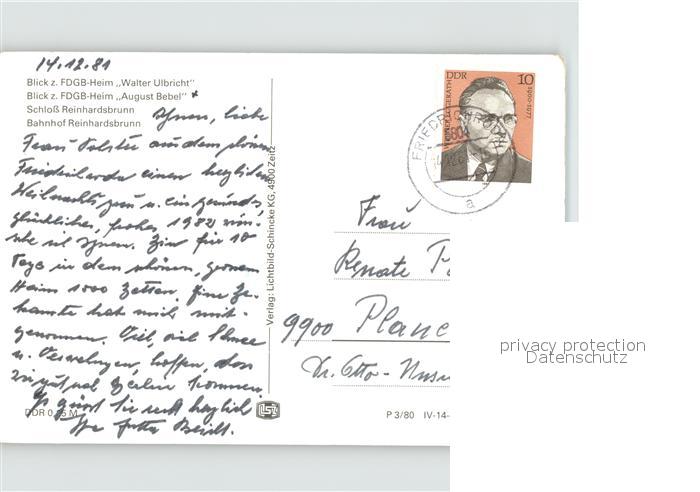 14.12.81
Blick z. FDGB-Heim „Walter Ulbricht"
Blick z. FDGB-Heim „August Bebel" x
Schloß Reinhardsbrunn
Bahnhof Reinhardsbrunn
Ihnen, liebe
Frau aus dem schönen
einen herzlichen
Weihnachts u. ein gesundes,
glückliches, frohes 1982
ich Ihnen. Bin für 10
Tage in dem schönen, grossen
Heim 1000 Betten. Eine Be-
kannte hat mich mit-
genommen. Viel, viel Schnee
u. hoffen, dass
wir gut nach Berlin kommen.
Es grüsst Sie recht herzlich
Ihre
DDR 0, M
Verlag: Lichtbild-Schincke KG, 4900 Zeitz
DDR 10
1900-1977
FRIEDRICHR
5804
a
Frau
Renate
9900 Plaue
Dr. Otto-
P 3/80 IV-14-
privacy protection
Datenschutz